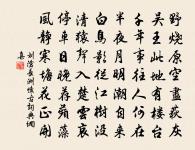 野燒原空盡荻灰
吳王此地有樓台
千年事往人何在
半夜月明潮自來
白鳥影從江樹沒
清猿聲入楚雲哀
停車日晚薦蘋藻
風靜寒塘花正開
劉滄長洲懷古詞典網
集